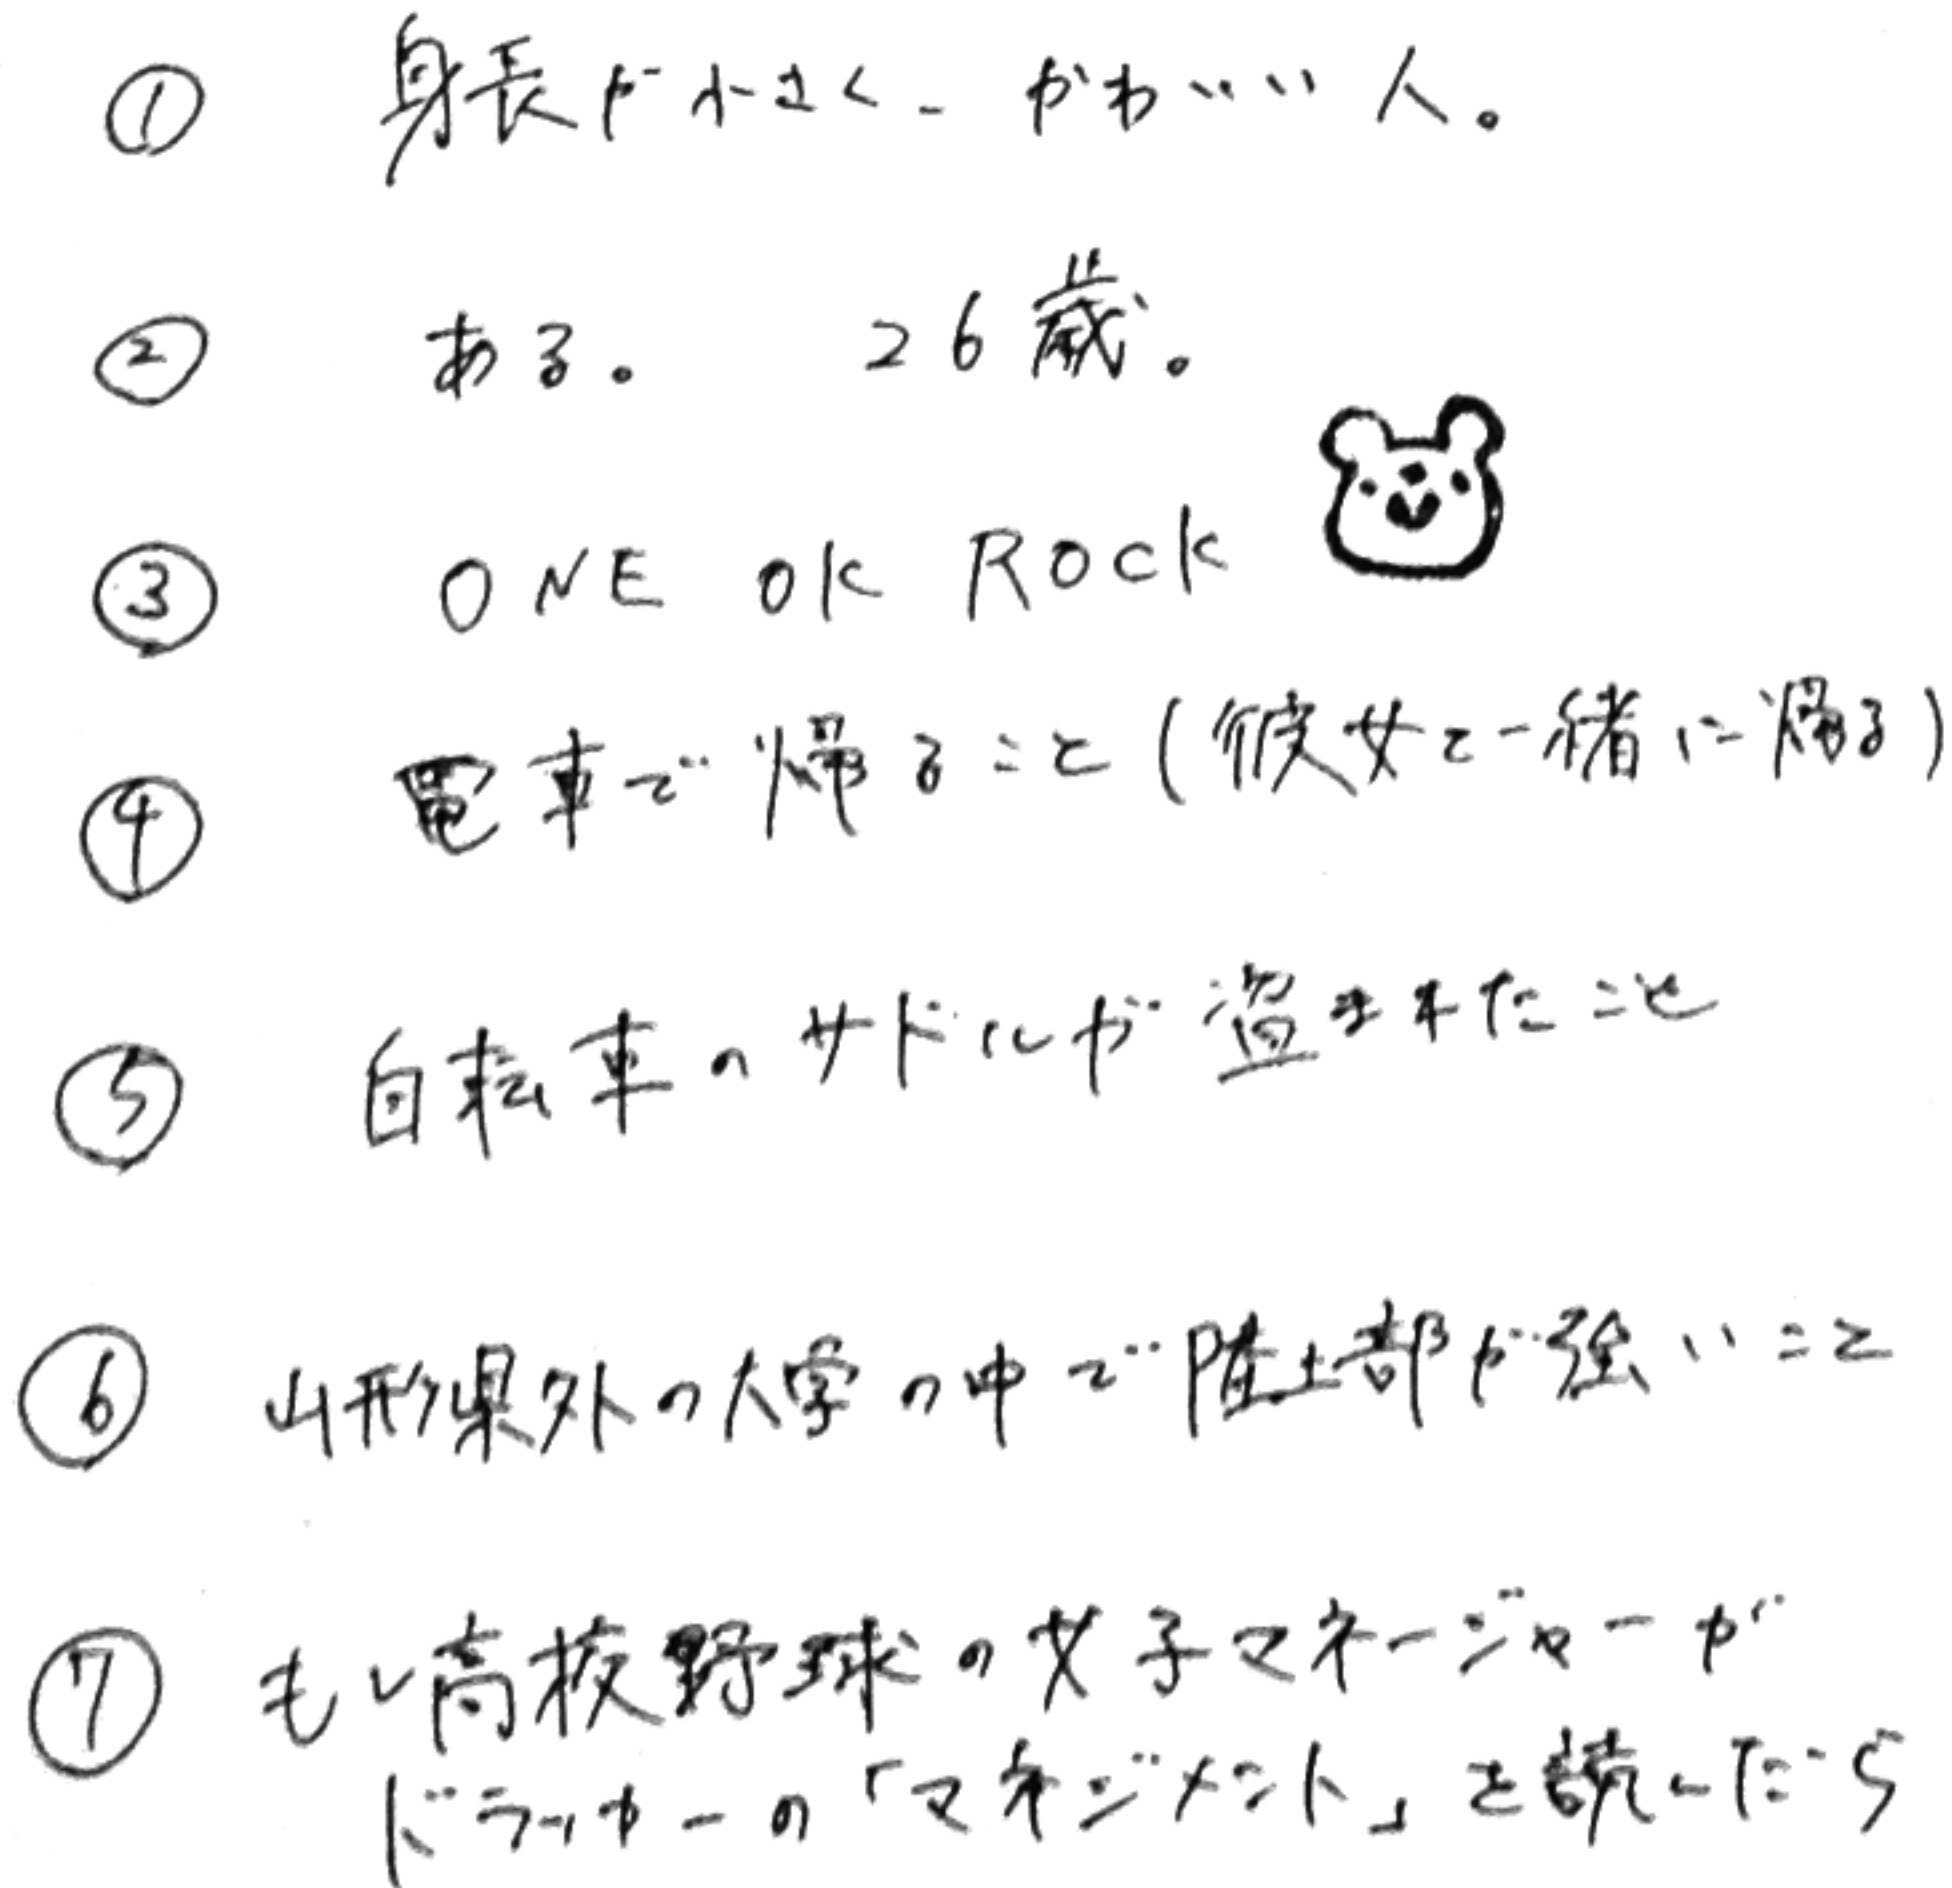 ① 身長が小さく、かわいい人。
② ある。 26歳。
③ ONE OK ROCK
④ 電車で帰ること(彼女と一緒に帰る)
⑤ 自転車のサドルが盗まれたこと
⑥ 山形県外の大学の中で陸上部が強いこと
⑦ もし高校野球の女子マネージャーが
ドラッカーの「マネジメント」を読んだら